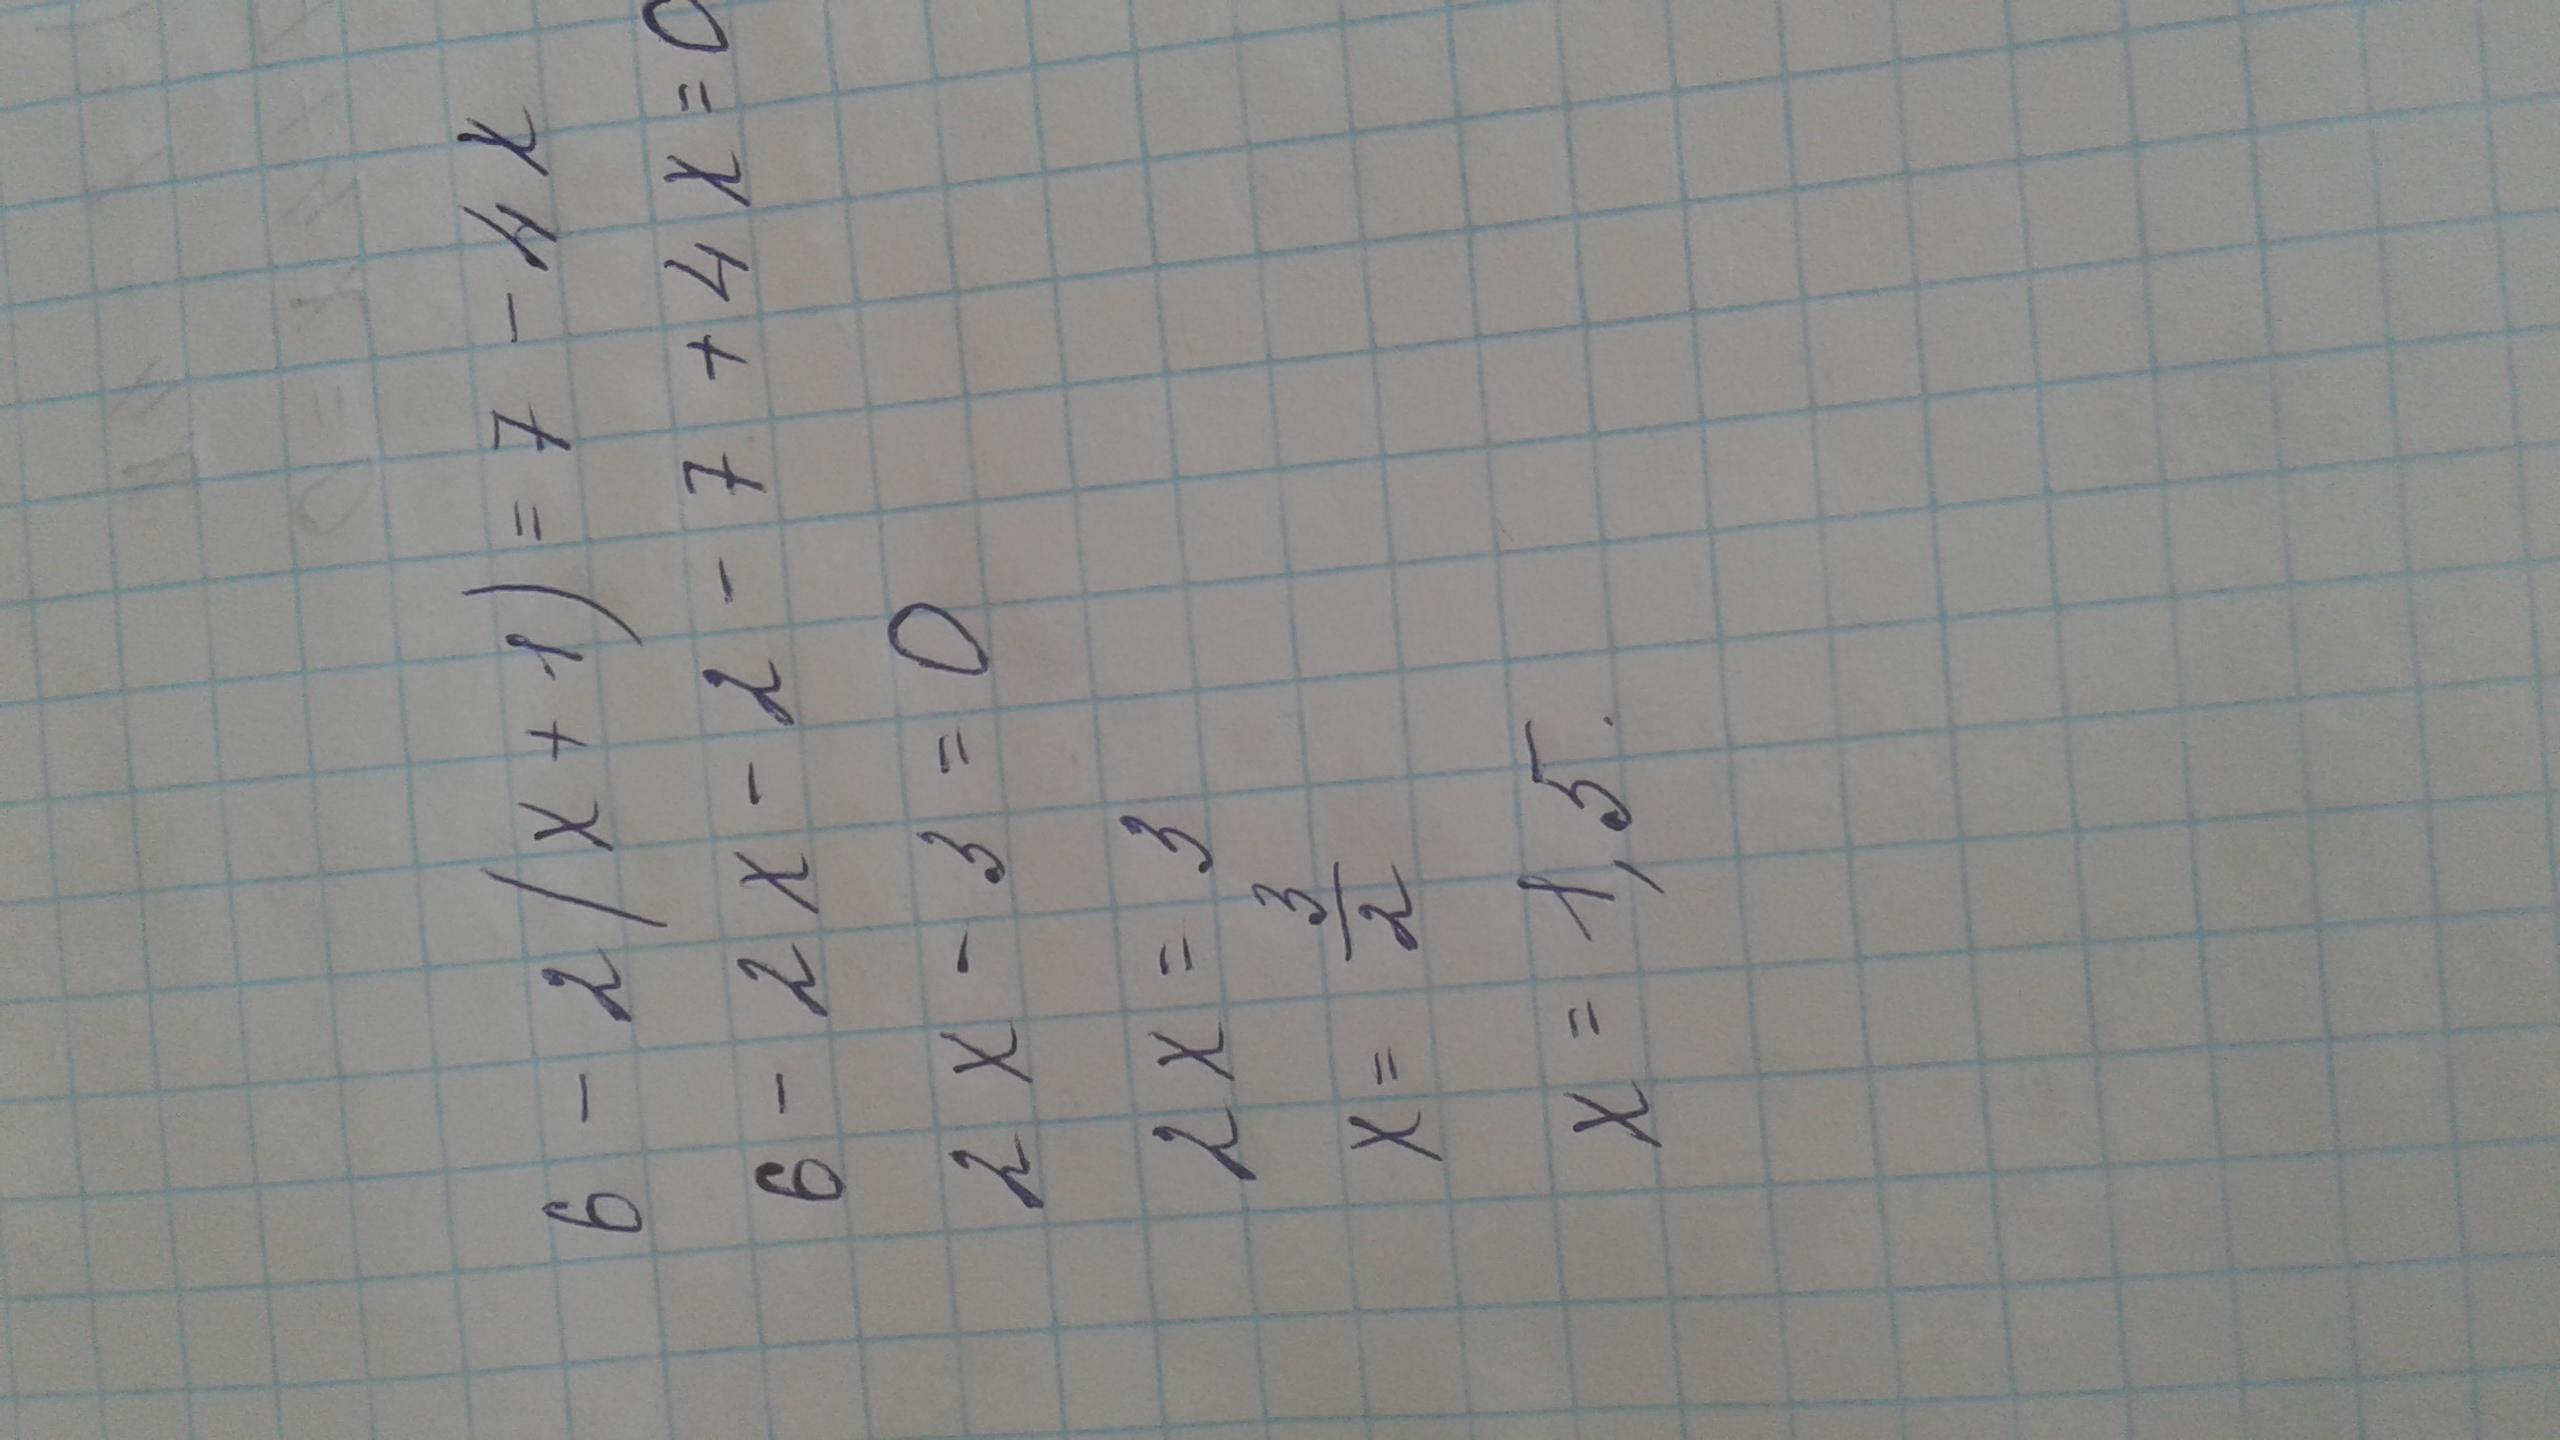 6 - 2(x + 1) = 7 - 4x
6 - 2x - 2 - 7 + 4x = 0
2x - 3 = 0
2x = 3
x = 3/2
x = 1,5.